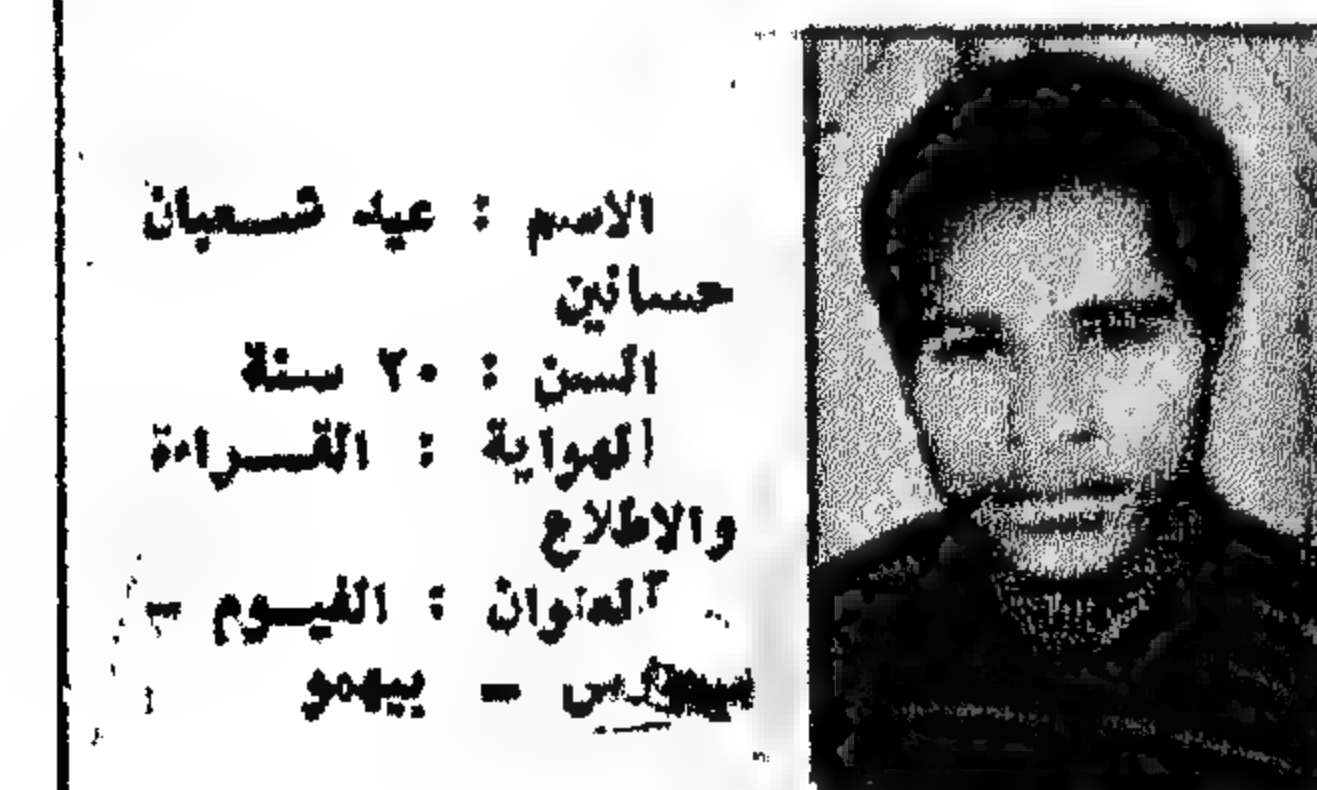 الاسم : عيد شعبان
حسانين
السن : ٢٠ سنة
الهواية : القراءة
والاطلاع
العنوان : الفيوم –
– بيهمو